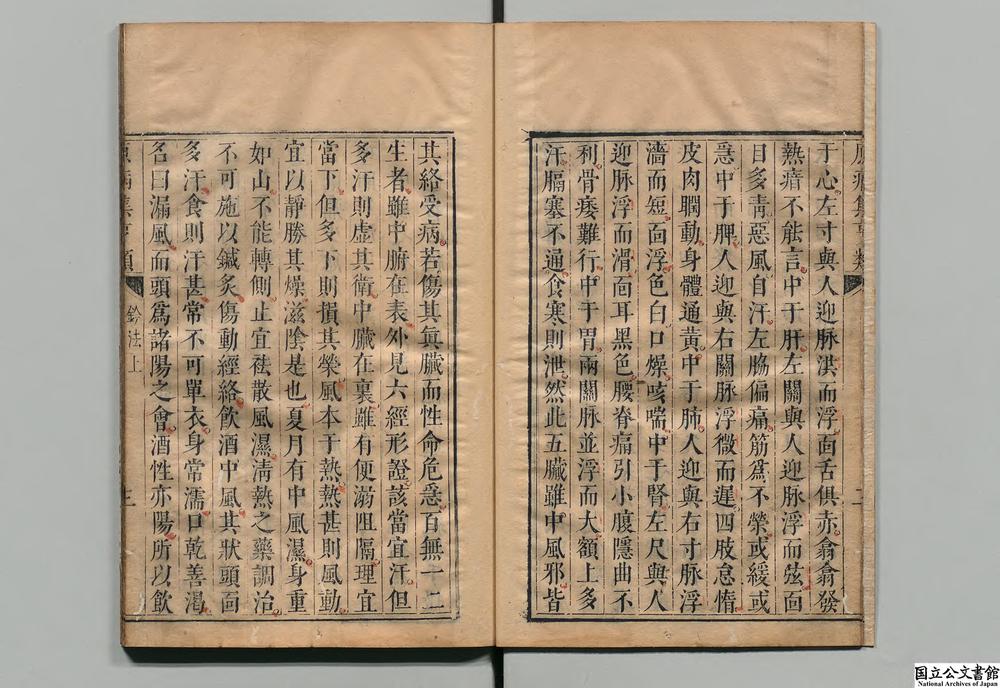 于心左寸與人迎脉洪而浮面舌俱赤翕翕發
熱瘖不能言中于肝左關與人迎脉浮而弦面
目多靑惡風自汗左脇偏痛筋爲不榮或緩或
急中于脾人迎與右關脉浮微而遲四肢怠惰
皮肉膶動身體通黃中于肺人迎與右寸脉浮
濇而短面浮色白口燥咳喘中于腎左尺與人
迎脉浮而滑面耳黑色腰脊痛引小腹隱曲不
利骨痿難行中于胃兩關脉並浮而大額上多
汗膈塞不通食寒則泄然此五臟雖中風邪皆
其絡受病若傷其眞臟而性命危急百無一二
生者雖中腑在表外見六經形證該當宜汗但
多汗則虛其衛中臟在裏雖有便溺阻隔理宜
當下但多下則損其榮風本于熱熱甚則風動
宜以靜勝其燥滋陰是也夏月有中風濕身重
如山不能轉側止宜祛散風濕淸熱之藥調治
不可施以鍼炙傷動經絡飲酒中風其狀頭面
多汗食則汗甚常不可單衣身常濡口乾善渴
名曰漏風而頭爲諸陽之會酒性亦陽所以飲
鈐法上
三
国立公文書館
National Archives of Japan